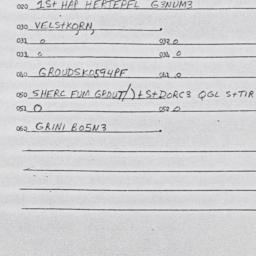 020 1St HAP HERTEPFL G3NUM3
030 VELStKORN,
031 o 032 o
033 o 034 o
040 GROUDSK0594PF 041 o
050 SHERC FUM GROUT/)tStDORC3 QGL StTIR
051 O 052 o
060 GRINI BOSN3